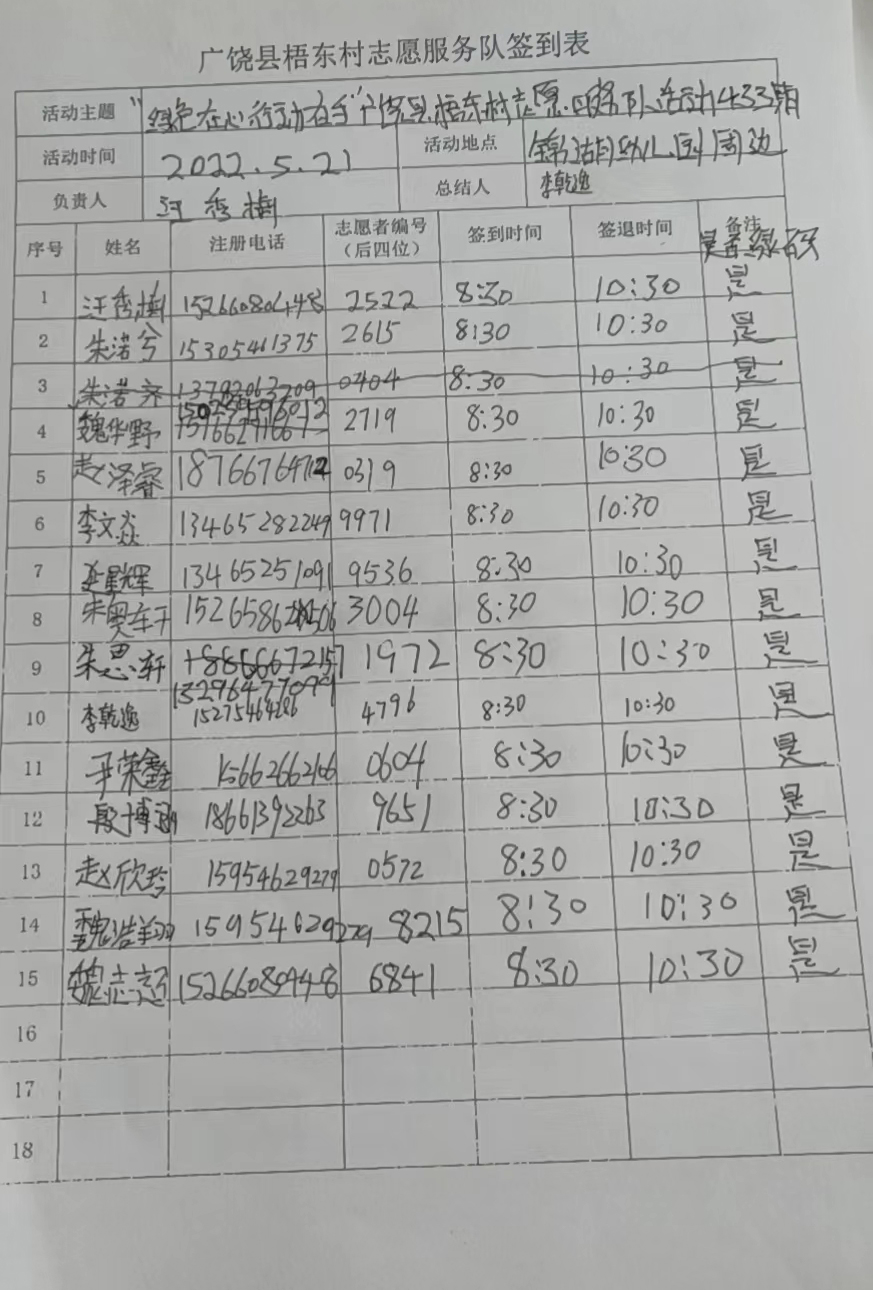 广饶县梧东村志愿服务队签到表
活动主题 "绿色在心行动在手"广饶县梧东村志愿服务队活动433期
活动时间 2022.5.21 活动地点 锦湖幼儿园周边
负责人 汪秀树 总结人 李乾逸
序号 姓名 注册电话 志愿者编号（后四位） 签到时间 签退时间 备注 是否绿码
1 汪秀树 15266080448 2522 8:30 10:30 是
2 朱诺兮 15305461375 2615 8:30 10:30 是
3 朱诺齐 0404 8:30 10:30 是
4 魏华野 2719 8:30 10:30 是
5 赵泽睿 0319 8:30 10:30 是
6 李文焱 13465282249 9971 8:30 10:30 是
7 延星辉 13465251091 9536 8:30 10:30 是
8 3004 8:30 10:30 是
9 朱思轩 1972 8:30 10:30 是
10 李乾逸 4796 8:30 10:30 是
11 15662662106 0604 8:30 10:30 是
12 18661392263 9651 8:30 10:30 是
13 赵欣玲 15954629279 0572 8:30 10:30 是
14 魏浩翔 15954629279 8215 8:30 10:30 是
15 15266080448 6841 8:30 10:30 是
16
17
18